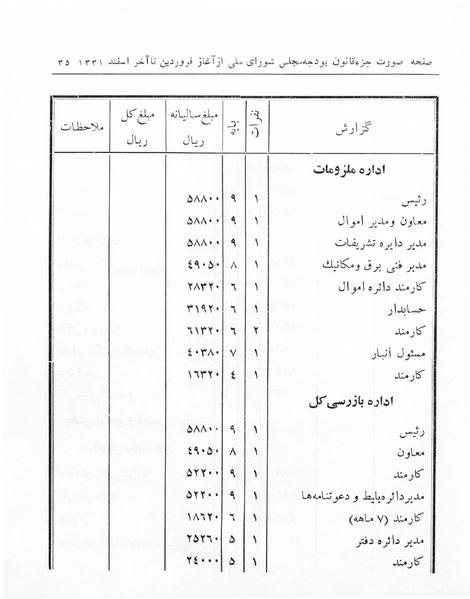 صفحه صورت جزء قانون بودجه مجلس شورای ملی از آغاز فروردین تا آخر اسفند ۱۳۳۱ ۳۵
گزارش نفرات پایه مبلغ سالیانه ریال مبلغ کل ریال ملاحظات
اداره ملزومات
رئیس ۱ ۹ ۵۸۸۰۰
معاون و مدیر اموال ۱ ۹ ۵۸۸۰۰
مدیر دایره تشریفات ۱ ۹ ۵۸۸۰۰
مدیر فنی برق و مکانیک ۱ ۸ ۴۹۰۵۰
کارمند دائره اموال ۱ ۶ ۲۸۳۲۰
حسابدار ۱ ۶ ۳۱۹۲۰
کارمند ۲ ۶ ۶۱۳۲۰
مسئول انبار ۱ ۷ ۴۰۳۸۰
کارمند ۱ ۴ ۱۶۳۲۰
اداره بازرسی کل
رئیس ۱ ۹ ۵۸۸۰۰
معاون ۱ ۸ ۴۹۰۵۰
کارمند ۱ ۹ ۵۲۲۰۰
مدیر دائره بلیط و دعوتنامه‌ها ۱ ۹ ۵۲۲۰۰
کارمند (۷ ماهه) ۱ ۶ ۱۸۶۲۰
مدیر دائره دفتر ۱ ۵ ۲۵۲۶۰
کارمند ۱ ۵ ۲۴۰۰۰